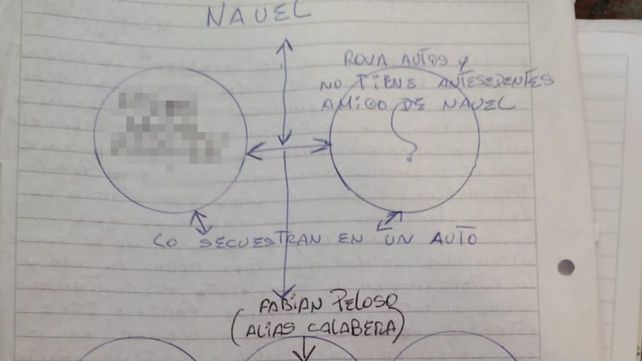 NAUEL
ROVA AUTOS y
NO TIENE ANTESEDENTES
AMIGO DE NAUEL
?
LO SECUESTRAN EN UN AUTO
FABIAN PELOSO
(ALIAS CALABERA)